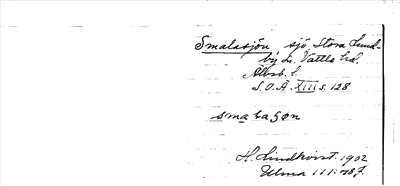 Smalasjön, sjö, Stora Lund-
by s. Vättle hd.
Älvsb. l.
S.O.Ä. XIII s. 128
smalasøn
H. Lindkvist 1902